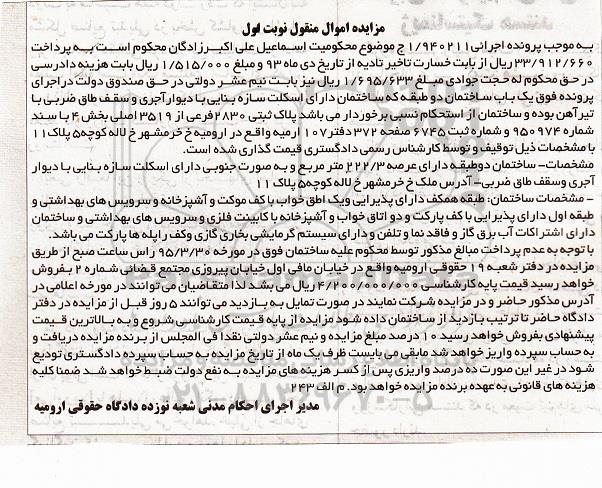 مزایده اموال منقول نوبت اول
به موجب پرونده اجرائی ۱/۹۴۰۲۱۱ ج موضوع محکومیت اسماعیل علی اکبرزادگان محکوم است به پرداخت
۳۳/۹۱۲/۶۶۰ ریال از بابت خسارت تاخیر تادیه از تاریخ دی ماه ۹۳ و مبلغ ۱/۵۱۵/۰۰۰ ریال بابت هزینه دادرسی
در حق محکوم له حجت جوادی مبلغ ۱/۶۹۵/۶۳۳ ریال نیز بابت نیم عشر دولتی در حق صندوق دولت در اجرای
پرونده فوق یک باب ساختمان دو طبقه که ساختمان دارای اسکلت سازه بنایی با دیوار آجری و سقف طاق ضربی با
تیر آهن بوده و ساختمان از استحکام نسبی برخوردار می باشد پلاک ثبتی ۲۸۳۰ فرعی از ۳۵۱۹ اصلی بخش ۴ با سند
شماره ۹۵۰۹۷۴ و شماره ثبت ۶۷۴۵ صفحه ۳۷۲ دفتر ۱۰۷ ارمیه واقع در ارومیه خ خرمشهر خ لاله کوچه۵ پلاک ۱۱
با مشخصات ذیل توقیف و توسط کارشناس رسمی دادگستری قیمت گذاری شده است.
مشخصات- ساختمان دوطبقه دارای عرصه ۲۲۲/۳ متر مربع و به صورت جنوبی دارای اسکلت سازه بنایی با دیوار
آجری وسقف طاق ضربی- آدرس ملک خ خرمشهر خ لاله کوچه۵ پلاک ۱۱
- مشخصات ساختمان: طبقه همکف دارای پذیرایی ویک اطق خواب با کف موکت و آشپزخانه و سرویس های بهداشتی و
طبقه اول دارای پذیرایی با کف پارکت و دو اتاق خواب و آشپزخانه با کابینت فلزی و سرویس های بهداشتی و ساختمان
دارای اشتراکات آب برق گاز و فاقد نما و تلفن و دارای سیستم گرمایشی بخاری گازی وکف راپله ها پارکت می باشد.
با توجه به عدم پرداخت مبالغ مذکور توسط محکوم علیه ساختمان فوق در مورخه ۹۵/۳/۳۰ راس ساعت صبح از طریق
مزایده در دفتر شعبه ۱۹ حقوقی ارومیه واقع در خیابان مافی اول خیابان پیروزی مجتمع قضائی شماره ۲ بفروش
خواهد رسید قیمت پایه کارشناسی ۴/۲۰۰/۰۰۰/۰۰۰ ریال می بشد لذا متقاضیان می توانند در مورخه اعلامی در
آدرس مذکور حاضر و در مزایده شرکت نمایند در صورت تمایل به بازدید می توانند ۵ روز قبل از مزایده در دفتر
دادگاه حاضر تا ترتیب بازدید از ساختمان داده شود مزایده از پایه قیمت کارشناسی شروع و به بالاترین قیمت
پیشنهادی بفروش خواهد رسید ۱۰ درصد مبلغ مزایده و نیم عشر دولتی نقدا فی المجلس از برنده مزایده دریافت و
به حساب سپرده واریز خواهد شد مابقی می بایست ظرف یک ماه از تاریخ مزایده به حساب سپرده دادگستری تودیع
شود در غیر این صورت ده درصد واریزی پس از کسر هزینه های مزایده به نفع دولت ضبط خواهد شد ضمنا کلیه
هزینه های قانونی به عهده برنده مزایده خواهد بود. م الف ۲۴۳
مدیر اجرای احکام مدنی شعبه نوزده دادگاه حقوقی ارومیه